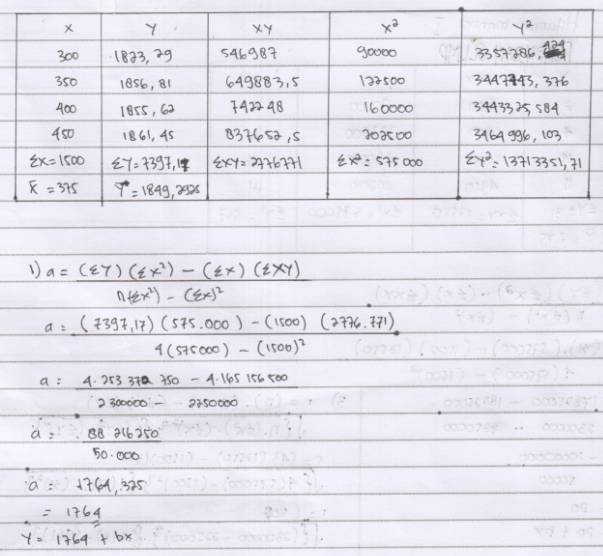 X Y XY X² Y²
300 1823,29 546987 90000 3357286,
350 1856,81 649883,5 122500 3447743,376
400 1855,62 742248 160000 3443325,584
450 1861,45 837652,5 202500 3464996,103
ΣX=1500 ΣY=7397,17 ΣXY=2776771 ΣX²=575000 ΣY²=13713351,71
X̄ = 375 Ȳ=1849,2925
1) a = (ΣY) (ΣX²) – (ΣX) (ΣXY)
n(ΣX²) – (ΣX)²
a = (7397,17) (575.000) – (1500) (2776.771)
4(575000) – (1500)²
a = 4.253 372 750 – 4.165 156 500
2300000 – 2250000
a = 88 216250
50.000
a = 1764,325
= 1764
Y = 1764 + bx